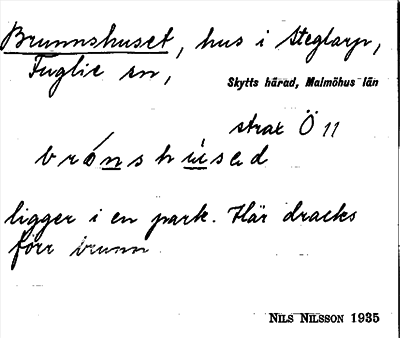 Brunnshuset, hus i Steglarp,
Fuglie sn,
Skytts härad, Malmöhus län
strax Ö 11
brónshùsəd
ligger i en park. Här dracks
förr brunn.
NILS NILSSON 1935